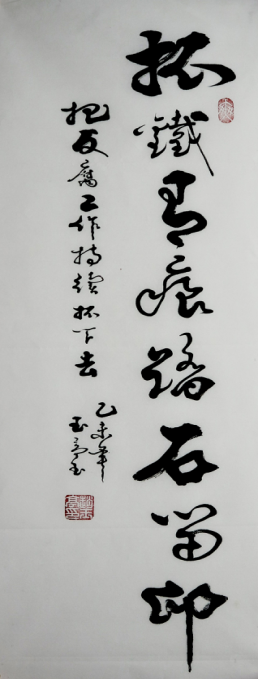 抓鐵有痕踏石留印
把反腐工作持續抓下去
乙未年